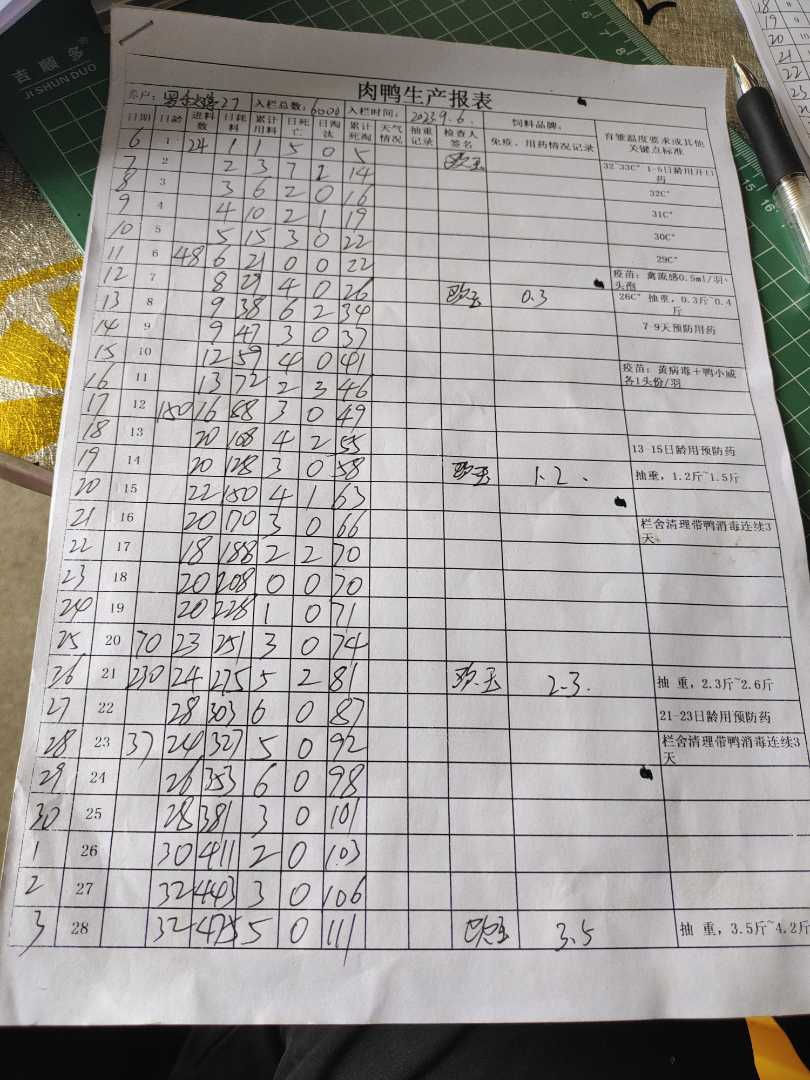 吉顺多
JI SHUN DUO
肉鸭生产报表
入栏总数: 6000 入栏时间: 2023.9.6. 饲料品牌:
日期 日龄 进料数 日耗料 累计用料 日死亡 日淘汰 累计死淘 天气情况 抽重记录 检查人签名 免疫、用药情况记录 育雏温度要求或其他关键点标准
6 1 24 1 1 5 0 5
7 2 2 3 7 2 14 32-33C° 1-5日龄用开口药
8 3 3 6 2 0 16 32C°
9 4 4 10 2 1 19 31C°
10 5 5 15 3 0 22 30C°
11 6 48 6 21 0 0 22 29C°
12 7 8 29 4 0 26 0.3 疫苗:禽流感0.5ml/羽、头孢
13 8 9 38 6 2 34 26C° 抽重,0.3斤~0.4斤
14 9 9 47 3 0 37 7-9天预防用药
15 10 12 59 4 0 41
16 11 13 72 2 3 46 疫苗:黄病毒+鸭小威各1头份/羽
17 12 180 16 88 3 0 49
18 13 20 108 4 2 55 13-15日龄用预防药
19 14 20 128 3 0 58 1.2. 抽重,1.2斤~1.5斤
20 15 22 150 4 1 63
21 16 20 170 3 0 66 栏舍清理带鸭消毒连续3天
22 17 18 188 2 2 70
23 18 20 208 0 0 70
24 19 20 228 1 0 71
25 20 70 23 251 3 0 74
26 21 230 24 275 5 2 81 2.3. 抽 重,2.3斤~2.6斤
27 22 28 303 6 0 87 21-23日龄用预防药
28 23 37 24 327 5 0 92 栏舍清理带鸭消毒连续3天
29 24 26 353 6 0 98
30 25 28 381 3 0 101
1 26 30 411 2 0 103
2 27 32 443 3 0 106
3 28 32 475 5 0 111 3.5 抽 重,3.5斤~4.2斤